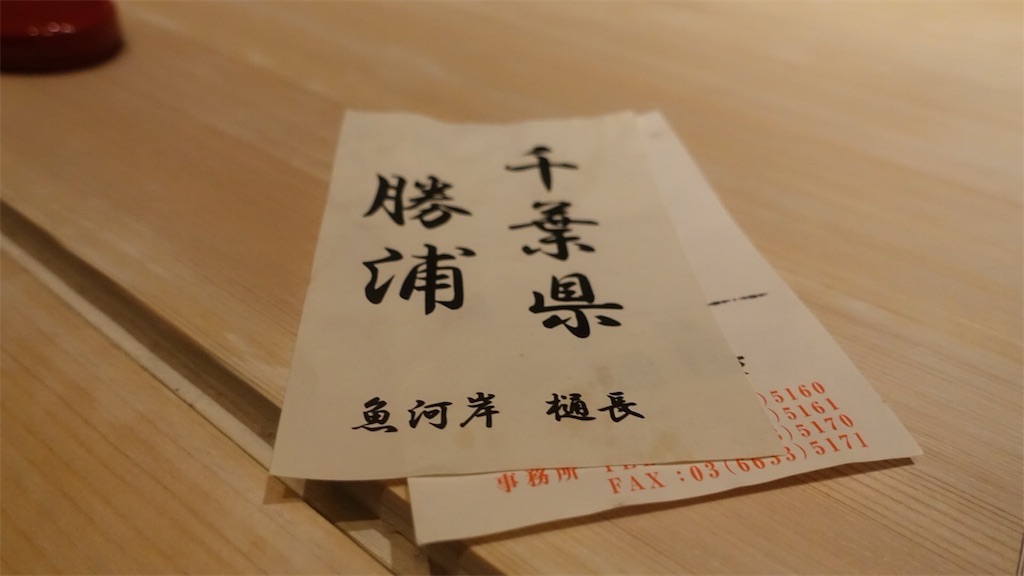 千葉県
勝浦
魚河岸 樋長
)5160
)5161
)5170
事務所
FAX:03(6633)5171